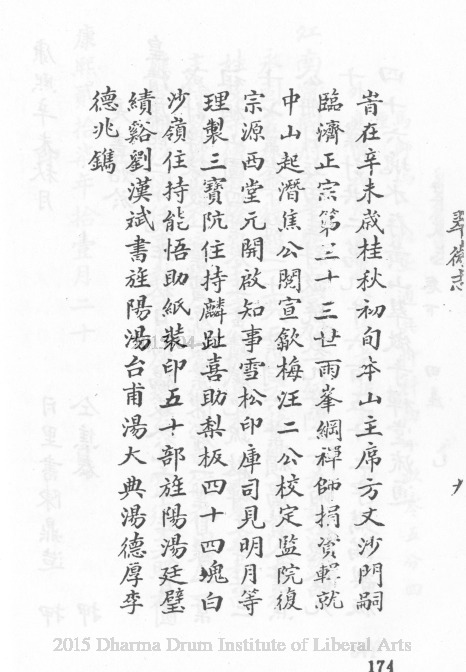 旹在辛未歲桂秋初旬本山主席方丈沙門嗣
臨濟正宗第三十三世雨峯綱禪師捐資輯就
中山起潛焦公閱宣歙梅汪二公校定監院復
宗源西堂元開啟知事雪松印庫司見明月等
理製三寶阬住持麟趾喜助梨板四十四塊白
沙嶺住持能悟助紙裝印五十部旌陽湯廷璧
績谿劉漢斌書旌陽湯台甫湯大典湯德厚李
德兆鐫
2015 Dharma Drum Institute of Liberal Arts
174